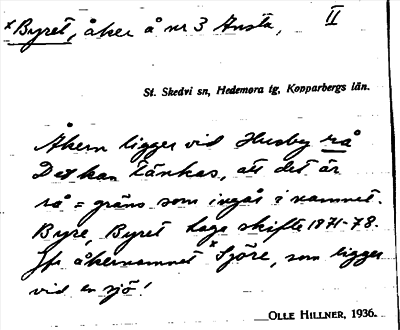 ×Byret, åker å nr 3 Ansta, II
St. Skedvi sn, Hedemora tg, Kopparbergs län.
Åkern ligger vid Husby rå
Det kan tänkas, att det är
rå = gräns som ingår i namnet.
Byre, Byret Laga skifte 1871-78.
Jfr åkernamnet ×Sjöre, som ligger
vid en sjö!
OLLE HILLNER, 1936.